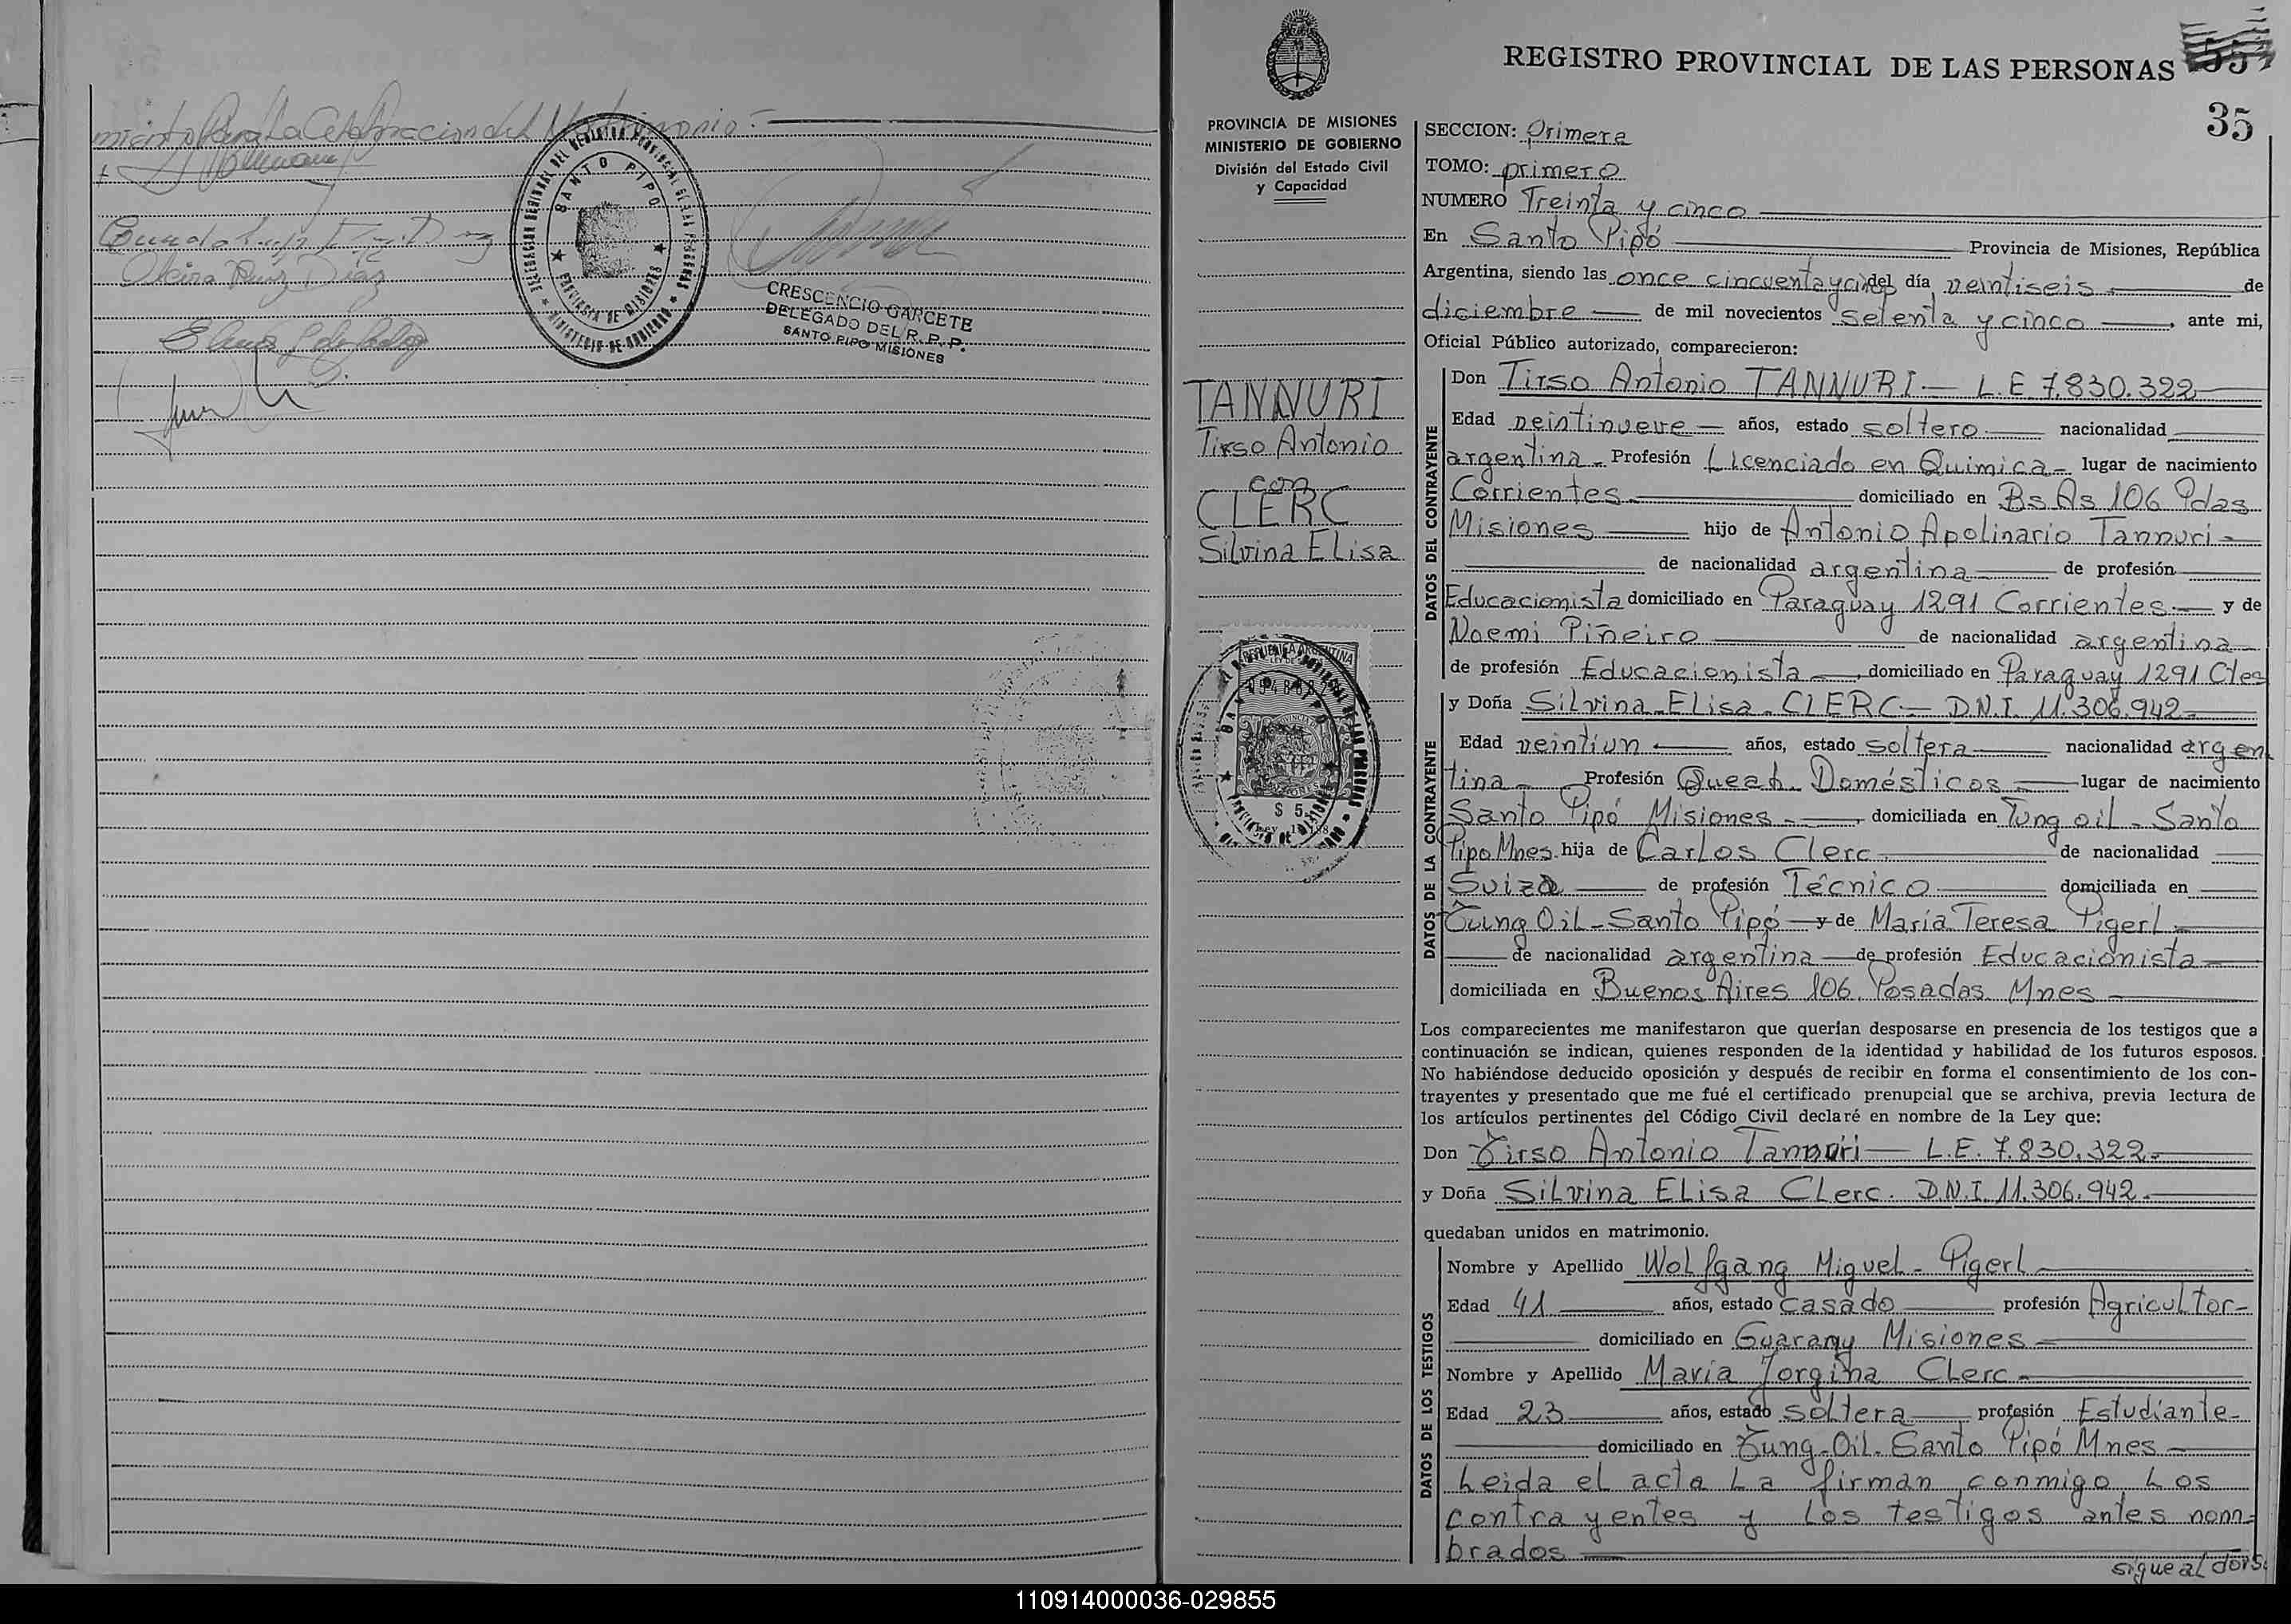 miento Para La Celebracion del Matrimonio.-
DELEGACION REGIONAL DEL REGISTRO PROVINCIAL DE LAS PERSONAS
SANTO PIPO
PROVINCIA DE MISIONES
MINISTERIO DE GOBIERNO
Oleira Ruiz Diaz
CRESCENCIO GARCETE
DELEGADO DEL R. P. P.
SANTO PIPO MISIONES
PROVINCIA DE MISIONES
MINISTERIO DE GOBIERNO
División del Estado Civil
y Capacidad
TANNURI
Tirso Antonio
con
CLERC
Silvina Elisa
REPUBLICA ARGENTINA
$ 5
REGISTRO PROVINCIAL DE LAS PERSONAS
35
SECCION: Primera
TOMO: primero
NUMERO Treinta y cinco
En Santo Pipó Provincia de Misiones, República
Argentina, siendo las once cincuenta y cinco del día veintiseis de
diciembre de mil novecientos setenta y cinco, ante mi,
Oficial Público autorizado, comparecieron:
DATOS DEL CONTRAYENTE
Don Tirso Antonio TANNURI - L.E. 7.830.322
Edad veintinueve años, estado soltero nacionalidad
argentina - Profesión Licenciado en Quimica - lugar de nacimiento
Corrientes domiciliado en Bs As 106 Pdas
Misiones hijo de Antonio Apolinario Tannuri -
de nacionalidad argentina de profesión
Educacionista domiciliado en Paraguay 1291 Corrientes y de
Noemi Piñeiro de nacionalidad argentina
de profesión Educacionista, domiciliado en Paraguay 1291 Ctes
DATOS DE LA CONTRAYENTE
y Doña Silvina Elisa CLERC - D.N.I. 11.306.942
Edad veintiun años, estado soltera nacionalidad argen
tina - Profesión Queah. Domésticos lugar de nacimiento
Santo Pipó Misiones -, domiciliada en Tung oil - Santo
Pipo Mnes hija de Carlos Clerc de nacionalidad
Suiza de profesión Técnico domiciliada en
Tung Oil - Santo Pipó y de Maria Teresa Pigerl
de nacionalidad argentina de profesión Educacionista
domiciliada en Buenos Aires 106 Posadas Mnes
Los comparecientes me manifestaron que querían desposarse en presencia de los testigos que a
continuación se indican, quienes responden de la identidad y habilidad de los futuros esposos.
No habiéndose deducido oposición y después de recibir en forma el consentimiento de los con-
trayentes y presentado que me fué el certificado prenupcial que se archiva, previa lectura de
los artículos pertinentes del Código Civil declaré en nombre de la Ley que:
Don Tirso Antonio Tannuri - L.E. 7.830.322.
y Doña Silvina Elisa Clerc. D.N.I. 11.306.942.
quedaban unidos en matrimonio.
DATOS DE LOS TESTIGOS
Nombre y Apellido Wolfgang Miguel - Pigerl
Edad 41 años, estado casado profesión Agricultor -
domiciliado en Guarany Misiones
Nombre y Apellido Maria Jorgina Clerc
Edad 23 años, estado soltera profesión Estudiante -
domiciliado en Tung-Oil. Santo Pipó Mnes
Leida el acta La firman conmigo Los
contrayentes y Los testigos antes nom-
brados
sigue al dors.
110914000036-029855